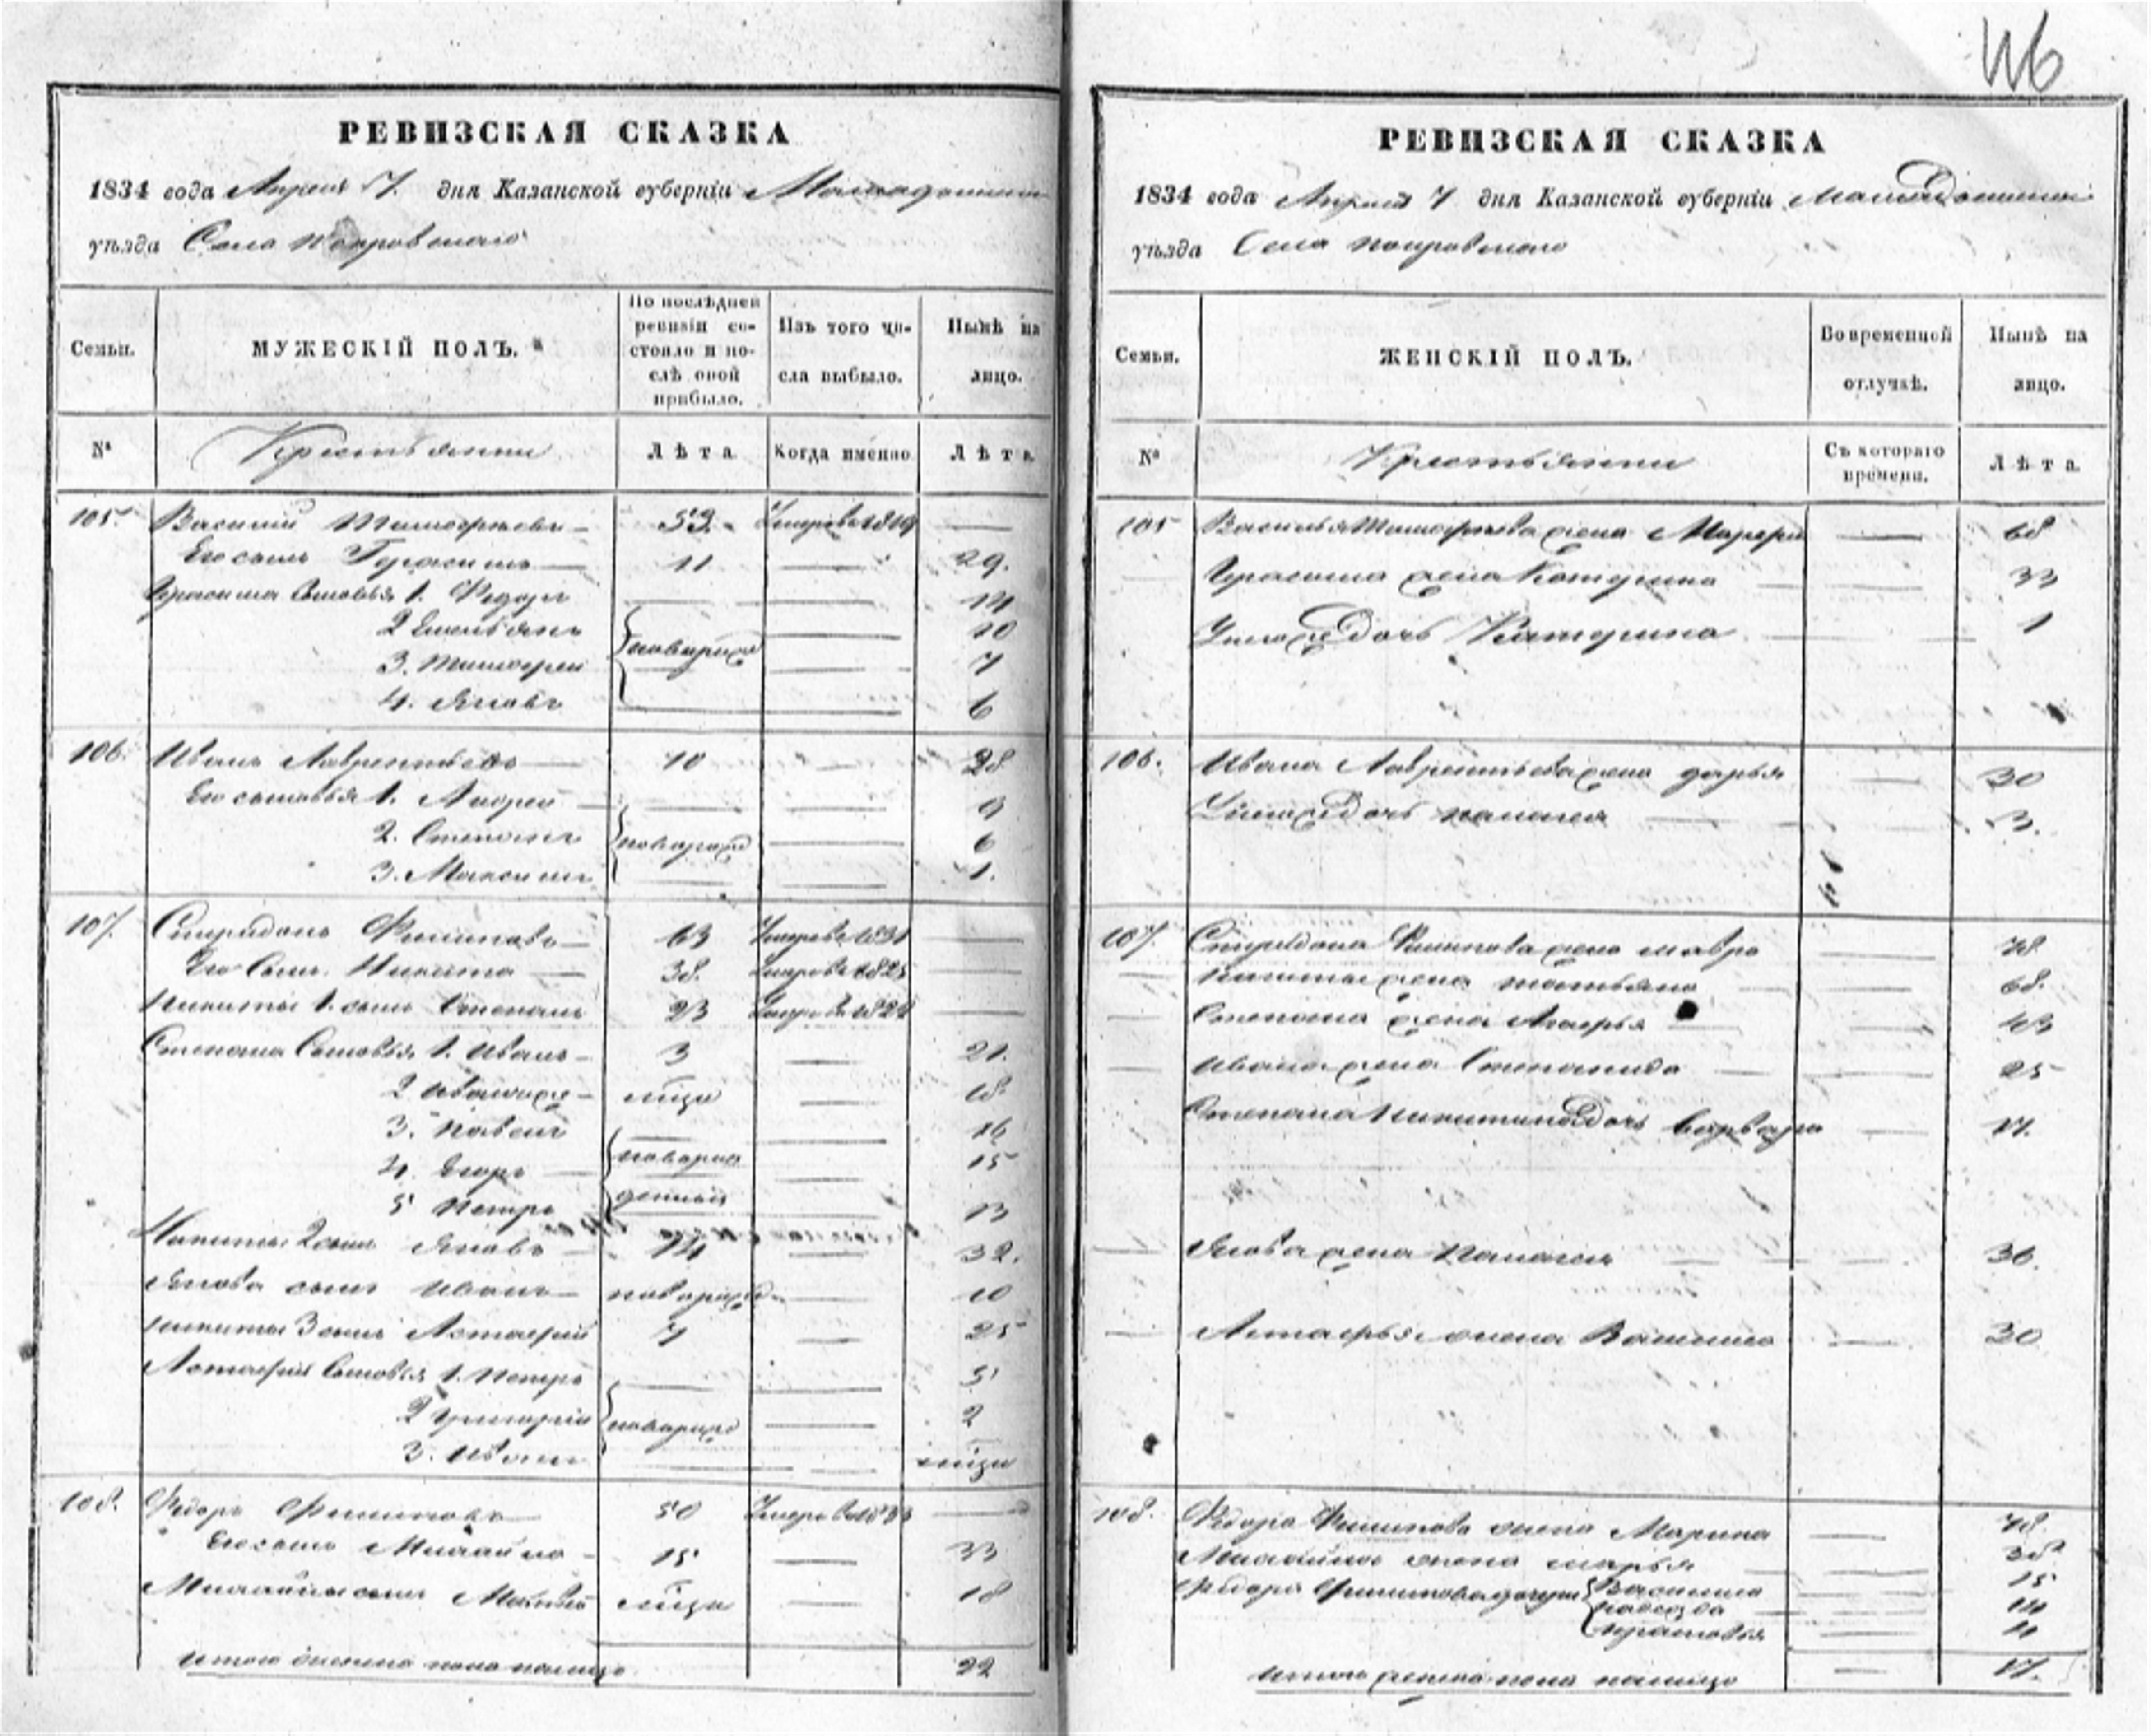 116
РЕВИЗСКАЯ СКАЗКА
1834 года Апреля 7. дня Казанской губерніи Мамадышскаго
уѣзда Села Покровскаго
Семьи.
МУЖЕСКІЙ ПОЛЪ.
По послѣдней ревизіи состояло и послѣ оной прибыло.
Изъ того числа выбыло.
Нынѣ на лицо.
№
Крестьянѣ
Лѣта
Когда именно
Лѣта
105. Василій Тимофѣевъ 53. Умеръ въ 1819
Его сынъ Герасимъ 11 29.
Герасима сыновья 1. Федоръ 14
2 Емельянъ 10
новорожд
3. Тимофей 7
4. Яковъ 6
106. Иванъ Лаврентьевъ 10 28
Его сыновья 1. Андрей 9
2. Степанъ новорожд 6
3. Максимъ 1.
107. Спиридонъ Филиповъ 63 Умеръ въ 1831
Его сынъ Никита 38. Умеръ въ 1825
Никиты 1. сынъ Степанъ 23 Умеръ въ 1828
Степана сыновья 1. Иванъ 3 21.
2 Иванъ же 18
3. Павелъ 16
4. Егоръ новорож 15
5 Петръ денныя 13
Никиты 2 сынъ Яковъ 14 32.
Якова сынъ Иванъ новорожд 10
Никиты 3 сынъ Астафій 7 25
Астафія сыновья 1. Петръ 5
2 Григорій новорожд 2
3. Иванъ
108. Федоръ Филиповъ 50 Умеръ въ 1833
Его сынъ Михайло 15 33
Михайлы сынъ Матвей 18
Итого мужеска пола на лицо 22
РЕВИЗСКАЯ СКАЗКА
1834 года Апреля 7 дня Казанской губерніи Мамадышскаго
уѣзда Села Покровскаго
Семьи.
ЖЕНСКІЙ ПОЛЪ.
Во временной отлучкѣ.
Нынѣ на лицо.
№
Крестьянѣ
Съ котораго времени.
Лѣта.
105 Василья Тимофѣева жена 68
Герасима жена Катерина 33
У него же дочь Катерина 1
106. Ивана Лаврентьева жена Дарья 30
У него же дочь Палагея 3.
107. Спиридона Филипова жена Мавра 78
Никиты жена Татьяна 68.
Степана жена Агафья 43
Ивана жена Степанида 25
Степана Никитина дочь Варвара 17.
Якова жена Палагея 36.
Астафья жена Василиса 30
108. Федора Филипова жена Марина 78.
Михайлы жена Марья 38
Федора Филипова дочери Василиса 15
14
11
Итого женска пола на лицо 17.